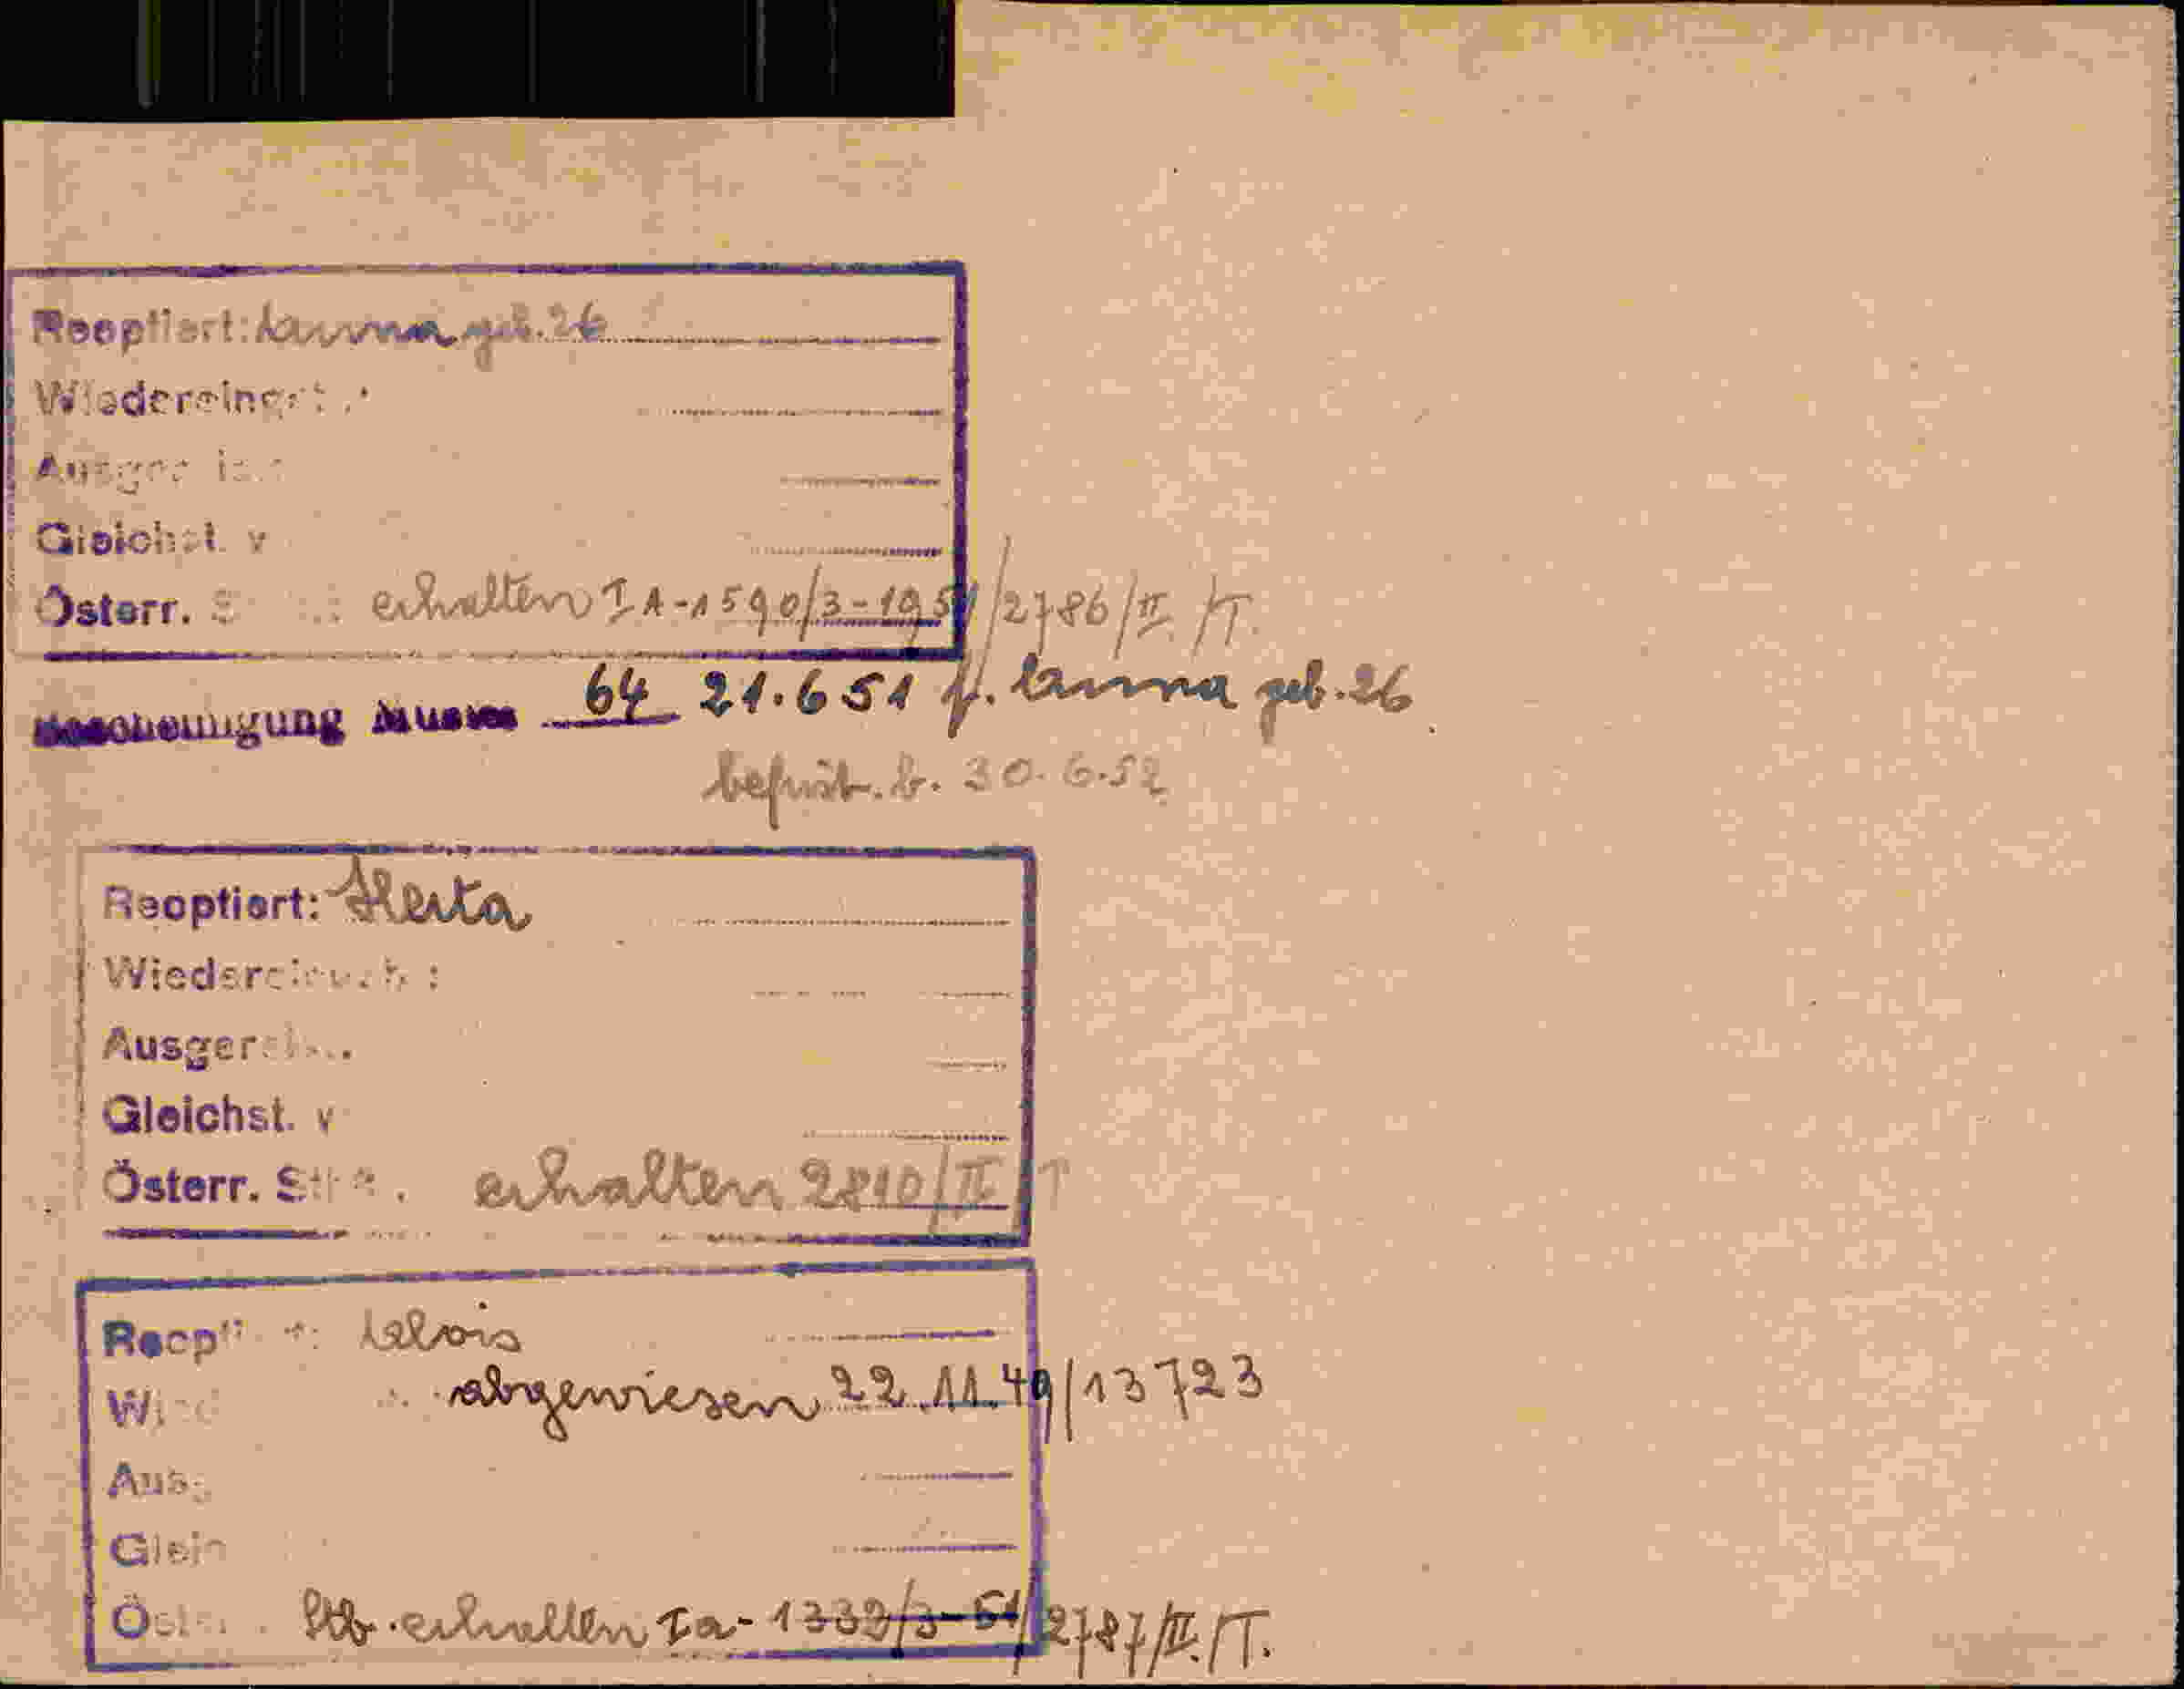 Reoptiert: Anna geb. 26
Wiedereinget
Ausgereist
Gleichst. v
Österr. S erhalten IA-1590/3-1951/2786/II/T.
Bescheinigung Muster 64 21.651 f. Anna geb. 26
befrist. b. 30.6.52
Reoptiert: Herta
Ausger
Gleichst. v
Österr. St erhalten 2810/II/T
Reopt Alois
abgewiesen 22.11.49/13723
Ausg
Gleich
Öst Stb. erhalten Ia-1339/3-51/2787/II./T.